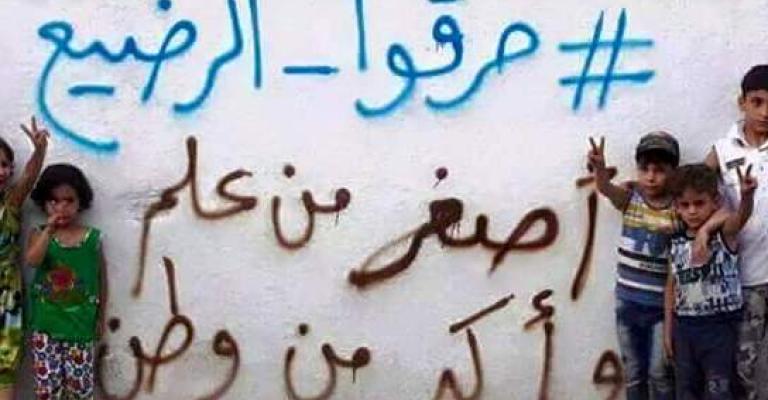 #حرقوا_الرضيع
أصغر من علم
وأكبر من وطن